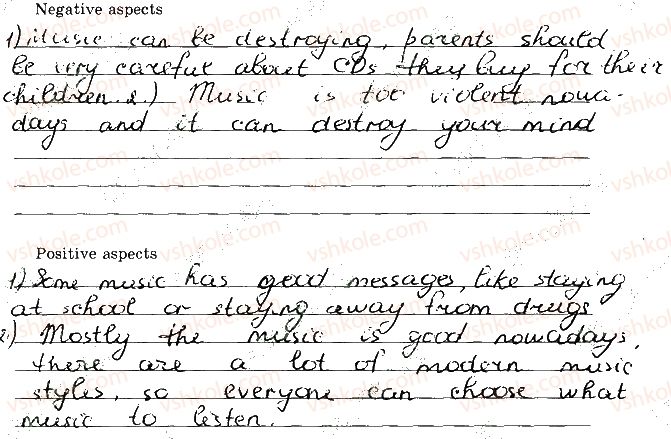 Negative aspects
1) Music can be destroying, parents should
be very careful about CDs they buy for their
children. 2.) Music is too violent nowa-
days and it can destroy your mind
Positive aspects
1) Some music has good messages, like staying
at school or staying away from drugs
2.) Mostly the music is good nowadays,
there are a lot of modern music
styles, so everyone can choose what
music to listen.
vshkole.com